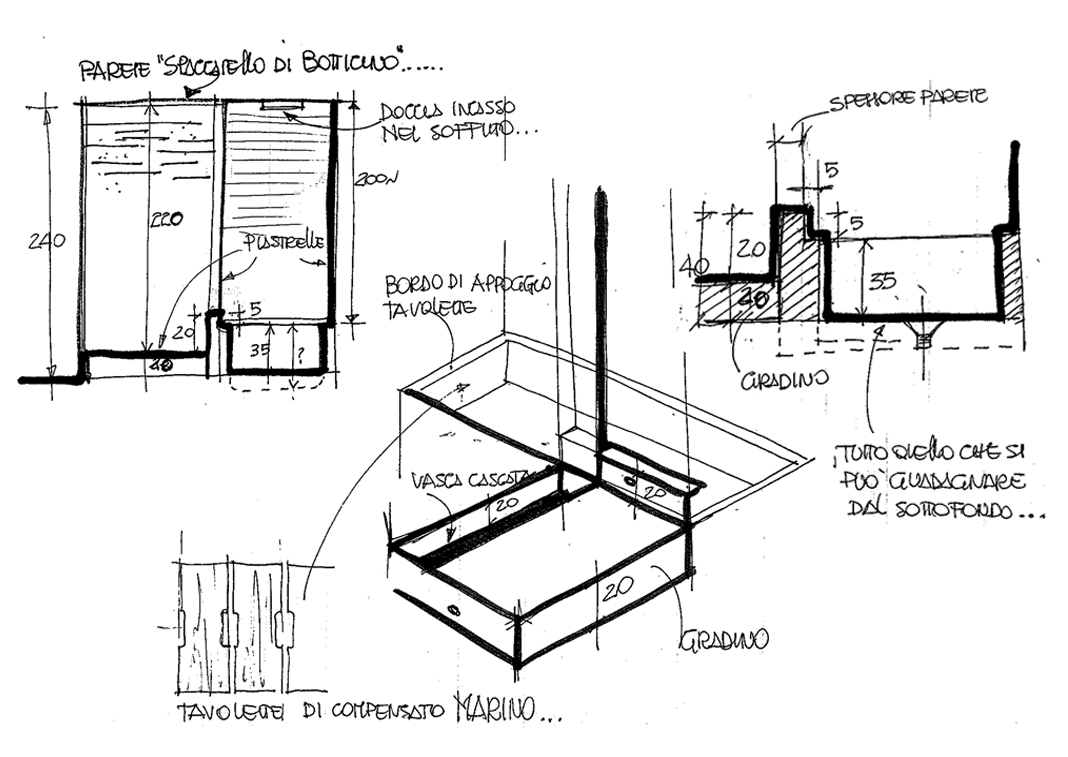 PARETE "SPACCATELLO DI BOTTICINO"......
DOCCIA INCASSO
NEL SOFFITTO...
240
220
200
PIASTRELLE
20
5
40
35
?
SPESSORE PARETE
5
5
20
40
20
35
GRADINO
¡TUTTO QUELLO CHE SI
PUÒ GUADAGNARE
DAL SOTTOFONDO...
BORDO DI APPOGGIO
TAVOLETTE
VASCA CASCATA
20
20
20
GRADINO
TAVOLETTE DI COMPENSATO MARINO...